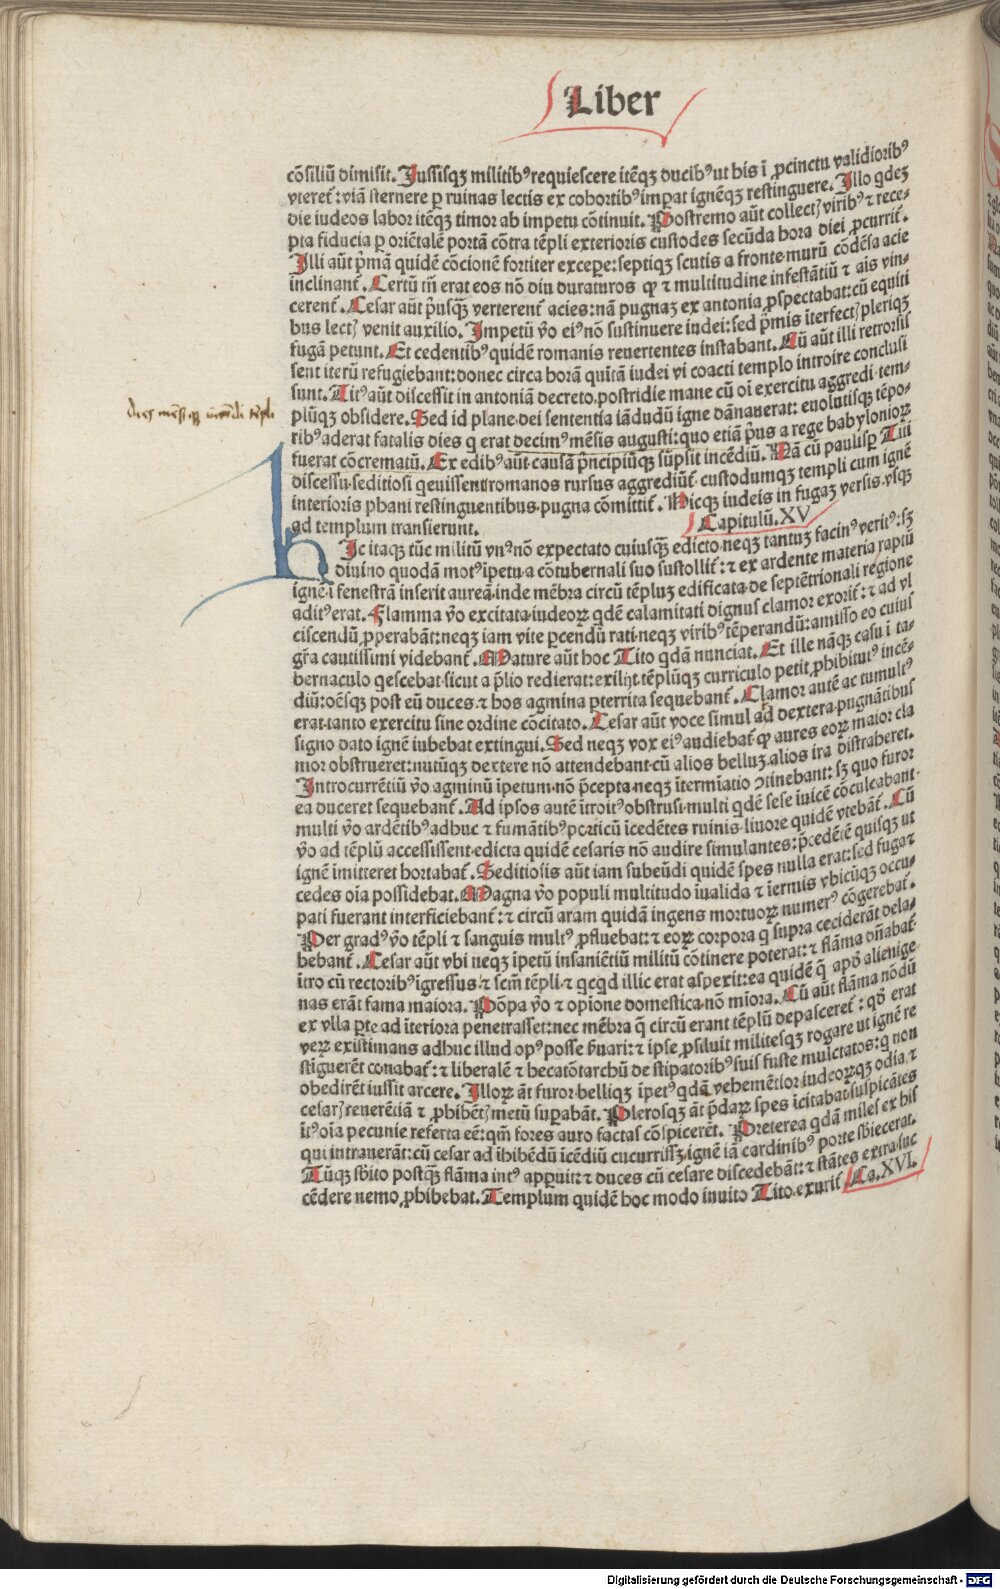 Liber
cōsiliū dimisit. Jussisqꝫ militibꝰ requiescere itēqꝫ ducibꝰ ut his ī ꝓcinctu validioribꝰ
vteret᷑: viā sternere ꝑ ruinas lectis ex cohortibꝰ imꝑat ignēqꝫ restinguere. Illo qdeꝫ
die iudeos labor itēqꝫ timor ab impetu cōtinuit. Postremo aūt collectꝭ viribꝰ ⁊ rece-
pta fiducia ꝑ oriētalē portā cōtra tēpli exterioris custodes secūda hora diei ꝓcurrit᷑.
Illi aūt pͥmā quidē cōcionē fortiter excepe: septiqꝫ scutis a fronte murū cōdēsa acie
inclinant᷑. Certū tn̄ erat eos nō diu duraturos ꝙ ⁊ multitudine infestātiū ⁊ ais vin-
cerent᷑. Cesar aūt pͥusqꝫ̄ verterent᷑ acies: nā pugnaꝫ ex antonia ꝓspectabat: cū equiti
bus lectꝭ venit auxilio. Impetū v̄o eiꝰ nō sustinuere iudei: sed pͥmis īterfectꝭ pleriqꝫ
fugā petunt. Et cedentibꝰ quidē romanis reuertentes instabant. Cū aūt illi retrorsū
sent iterū refugiebant: donec circa horā quītā iudei vi coacti templo introire conclusi
sunt. Titꝰ aūt discessit in antoniā decreto ꝓpostridie mane cū oī exercitu aggredi tem-
plūqꝫ obsidere. Sed id plane dei sententia iādudū igne dānauerat: euolutisqꝫ tēpo-
ribꝰ aderat fatalis dies q erat decimꝰ mēsis augusti: quo etiā pͥus a rege babylonioꝝ
dies mēsisqꝫ incēdi tēpli
fuerat cōcrematū. Ex edibꝰ aūt causā pͥncipiūqꝫ sūpsit incēdiū. Nā cū paulisꝑ Titi
discessu seditiosi qeuissent romanos rursus aggrediūt᷑ custodumqꝫ templi cum ignē
interioris phani restinguentibus pugna cōmittit᷑. Hicqꝫ iudeis in fugaꝫ versis vsqꝫ
ad templum transierunt. Capitulū. XV
HIc itaqꝫ tūc militū vnꝰ nō expectato cuiusqꝫ̄ edicto neqꝫ tantuꝫ facinꝰ veritꝰ: sꝫ
diuino quodā motꝰ īpetu a cōtubernali suo sustollit᷑: ⁊ ex ardente materia raptū
ignē ī fenestrā inserit aureā inde mēbra circū tēpluꝫ edificata de septētrionali regione
aditꝰ erat. Flamma v̄o excitata iudeoꝝ qdē calamitati dignus clamor exorit᷑: ⁊ ad vl
ciscendū ꝓperabāt: neqꝫ iam vite ꝑcendū rati neqꝫ viribꝰ tēperandū: amisso eo cuius
gr̄a cautissimi videbant᷑. Mature aūt hoc Tito qdā nunciat. Et ille nāqꝫ casu ī ta-
bernaculo qescebat sicut a p̄lio redierat: exilijt tēplūqꝫ curriculo petit ꝓhibiturꝰ incē-
diū: oēsqꝫ post eū duces ⁊ hos agmina ꝑterrita sequebant᷑. Clamor autē ac tumultꝰ
erat tanto exercitu sine ordine cōcitato. Cesar aūt voce simul ad dextera pugnātibus
signo dato ignē iubebat extingui. Sed neqꝫ vox eiꝰ audiebat᷑ ꝙ aures eoꝝ maior cla
mor obstrueret: nutūqꝫ dextere nō attendebant cū alios belluꝫ alios ira distraberet.
Introcurrētiū v̄o agminū īpetum nō p̄cepta neqꝫ īterminatio ↄtinebant: sꝫ quo furor
ea duceret sequebant᷑. Ad ipsos autē ītroitꝰ obstrusi multi qdē sese inuicē cōculcabant
multi v̄o ardētibꝰ adhuc ⁊ fumātibꝰ porticū īcedētes ruinis liuore quidē vtebāt᷑. Cū
v̄o ad tēplū accessissent edicta quidē cesaris nō audire simulantes: p̄cedētē quisqꝫ ut
ignē imitteret hortabat᷑. Seditiosis aūt iam subeūdi quidē spes nulla erat: sed fuga ⁊
cedes oīa possidebat. Magna v̄o populi multitudo īualida ⁊ īermis vbicūqꝫ occu-
pati fuerant interficiebant᷑: ⁊ circū aram quidā ingens mortuoꝝ numerꝰ cōgerebat᷑.
Per gradꝰ v̄o tēpli ⁊ sanguis multꝰ ꝓfluebat: ⁊ eoꝝ corpora q supra ceciderāt dela-
bebant᷑. Cesar aūt vbi neqꝫ īpetū insaniētiū militū cōtinere poterat: ⁊ flāma dn̄abat᷑
ītro cū rectoribꝰ īgressus ⁊ scm̄ tēpli ⁊ qcqd illic erat aspexit: ea quidē q̄ apd̄ alienige
nas erāt fama maiora. Pōpa v̄o ⁊ opīone domestica nō mīora. Cū aūt flāma nōdū
ex vlla ꝑte ad īteriora penetrasset: nec mēbra q̄ circū erant tēplū depasceret᷑: qd̄ erat
veꝝ existimans adhuc illud opꝰ posse ꝓuari: ⁊ ipse ꝓsiluit militesqꝫ rogare ut ignē re
stīguerēt conabat᷑: ⁊ liberalē ⁊ hecatōtarchū de stipatoribꝰ suis fuste mulctatos: q non
obedirēt iussit arcere. Illoꝝ āt furor belliqꝫ īpetꝰ qdā vehemētior iudeoꝝqꝫ odia ⁊
cesarꝭ reuerētiā ⁊ ꝓhibētꝭ metū suꝑabāt. Plerosqꝫ āt p̄daꝝ spes īcitabat suspicātes
ītꝰ oīa pecunie referta eē: qm̄ fores auro factas cōspicerēt. Preterea qdā miles ex his
qui intrauerāt: cū cesar ad ihibēdū īcēdiū cucurrissꝫ ignē iā cardinibꝰ porte sbiecerat.
Tūqꝫ sbito postqꝫ̄ flāma intꝰ apꝑuit: ⁊ duces cū cesare discedebāt: ⁊ stātes extra suc
cēdere nemo ꝓhibebat. Templum quidē hoc modo inuito Tito exurit᷑. Ca. XVI.
Digitalisierung gefördert durch die Deutsche Forschungsgemeinschaft - DFG